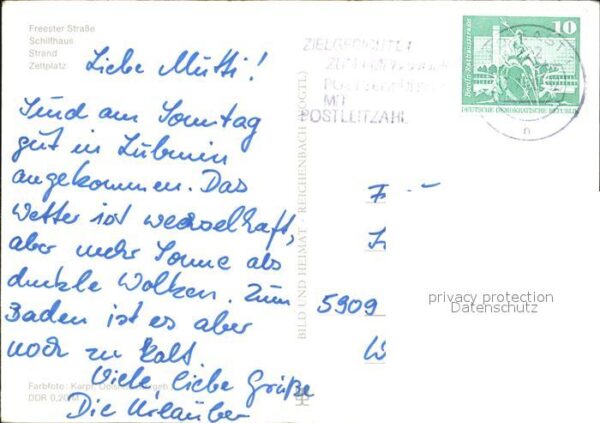 Freester Straße
Schilfhaus
Strand
Zeltplatz
Liebe Mutti!
Sind am Sonntag
gut in Lubmin
angekommen. Das
Wetter ist wechselhaft,
aber mehr Sonne als
dunkle Wolken. Zum
Baden ist es aber
noch zu kalt.
Viele liebe Grüße
Die Urlauber
Farbfoto: Karpf,
DDR 0,20 M
BILD UND HEIMAT · REICHENBACH (VOGTL)
MIT
POSTLEITZAHL
10
Berlin-Rathausstraße
DEUTSCHE DEMOKRATISCHE REPUBLIK
n
5909
privacy protection
Datenschutz